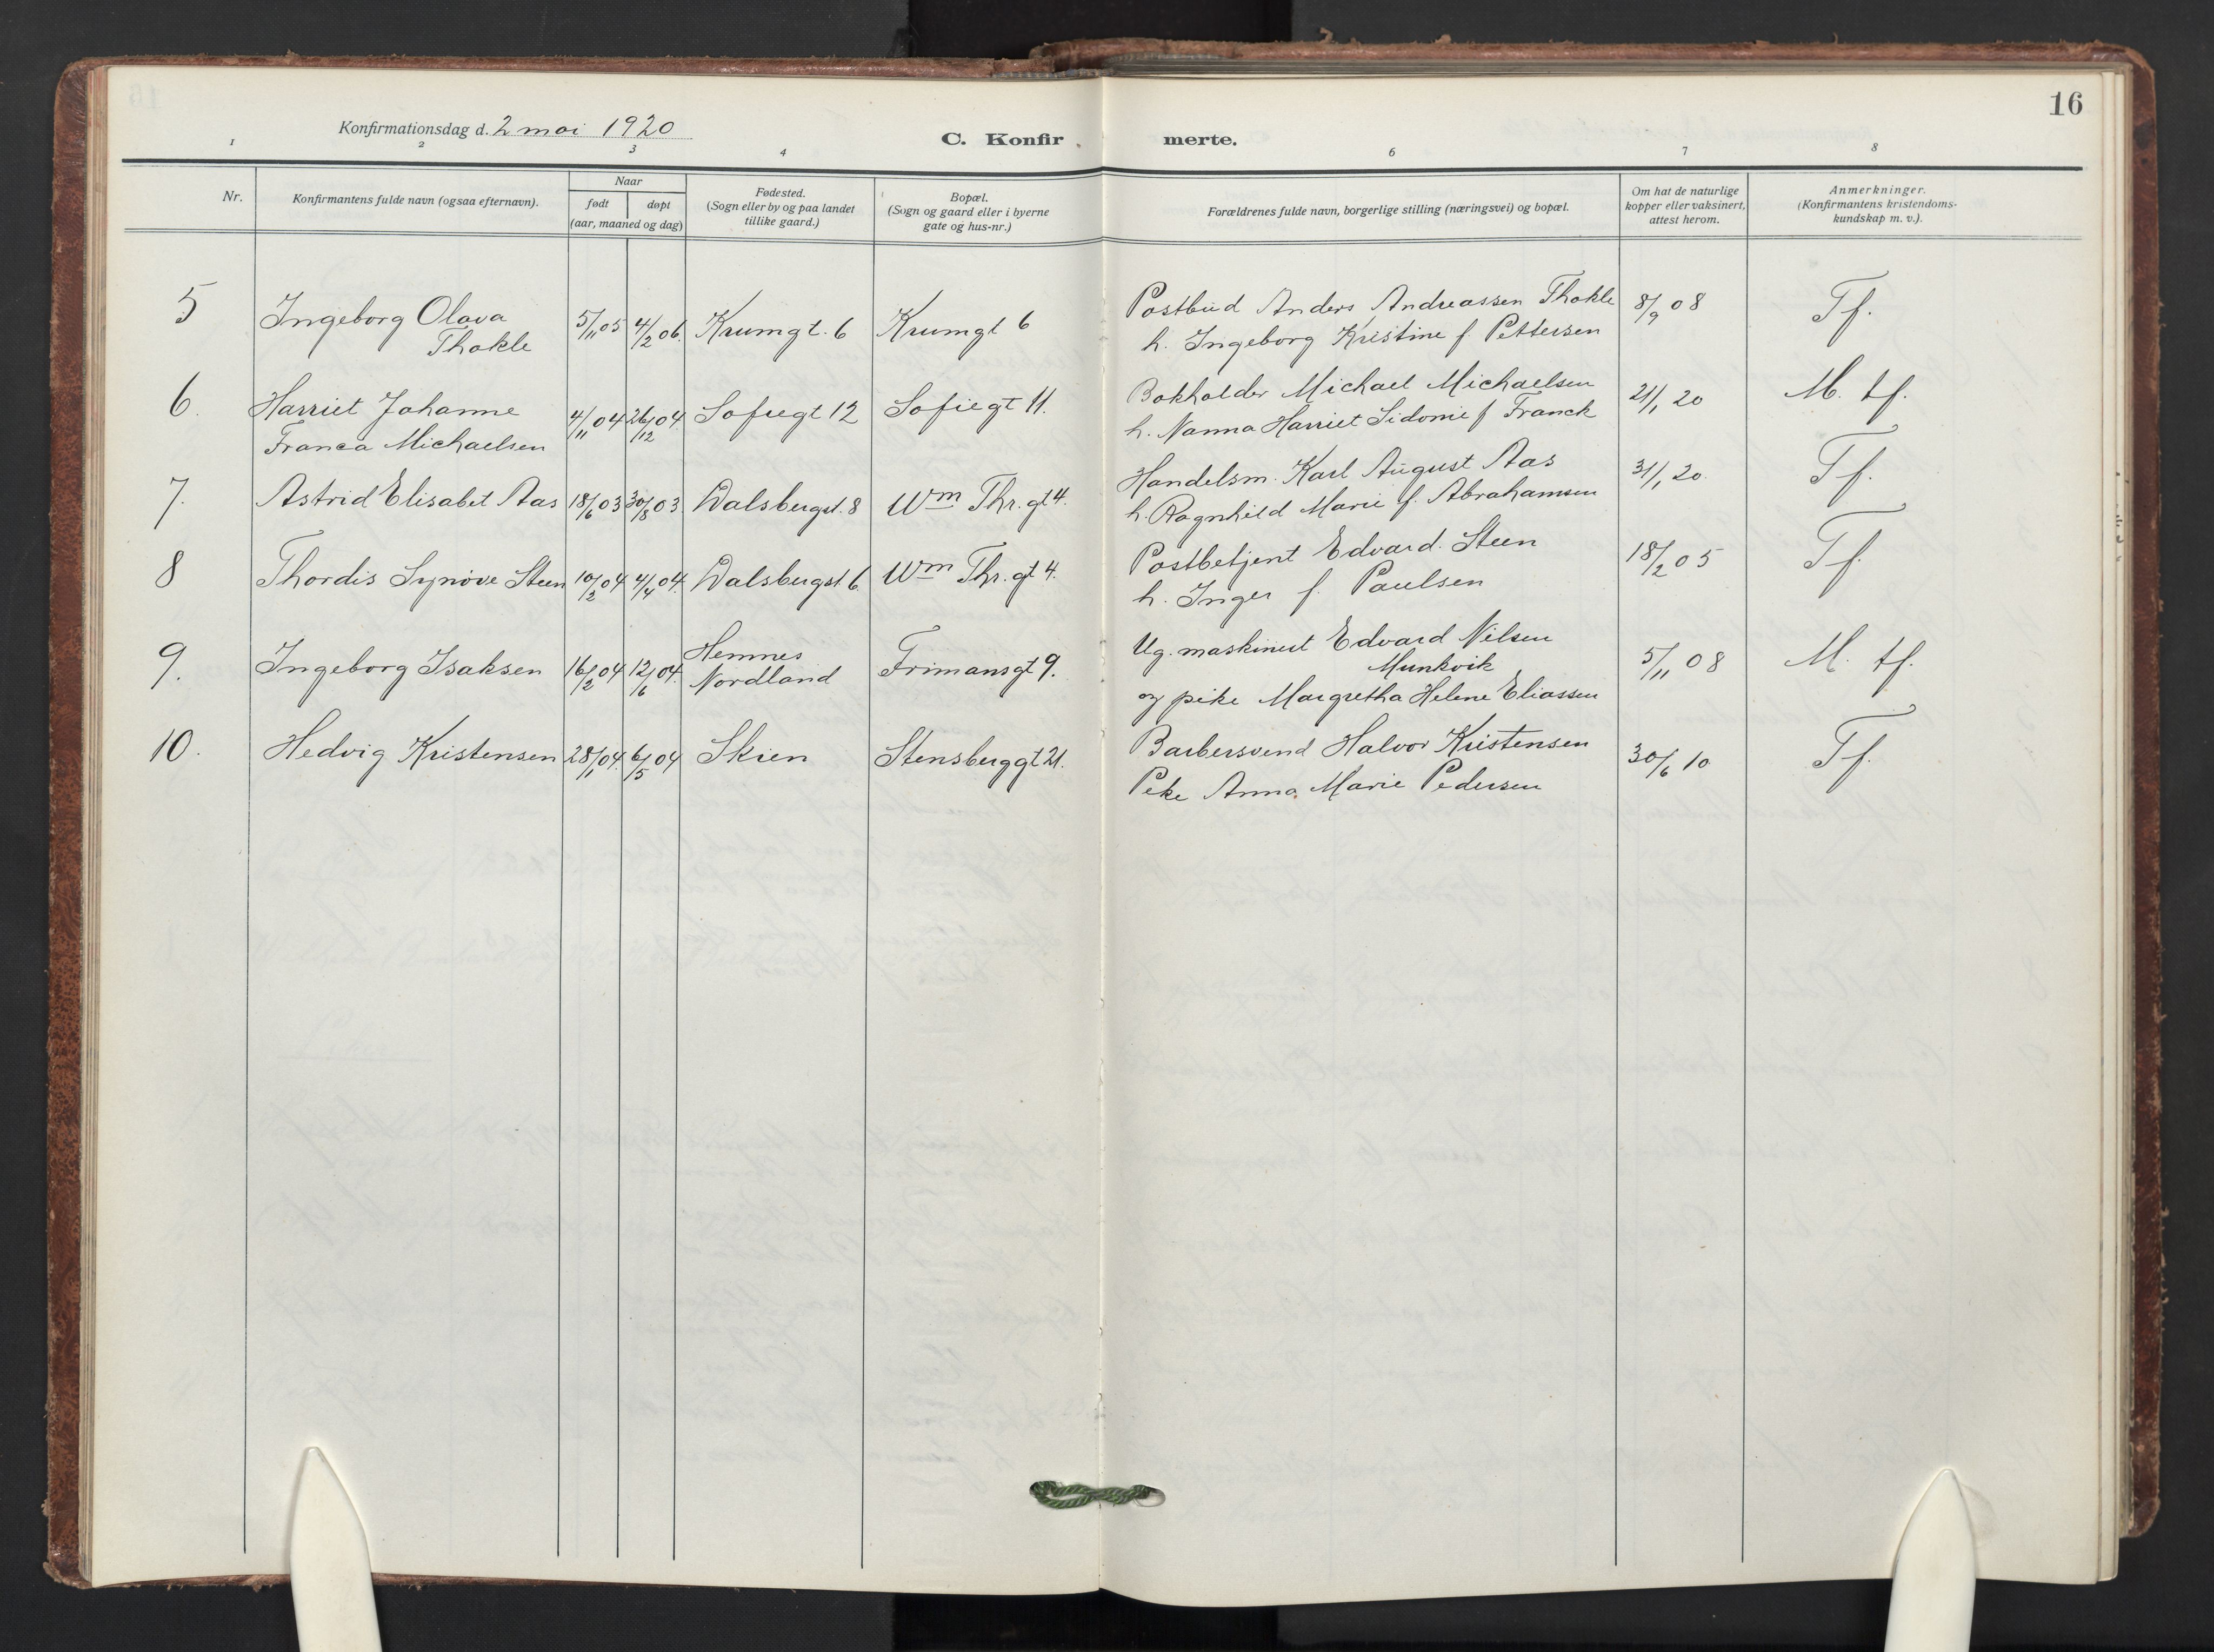 16
Konfirmationsdag d. 2 mai 1920
C. Konfirmerte.
1 2 3 4 6 7 8
Nr.
Konfirmantens fulde navn (ogsaa efternavn).
Naar
født døpt
(aar, maaned og dag)
Fødested.
(Sogn eller by og paa landet
tillike gaard.)
Bopæl.
(Sogn og gaard eller i byerne
gate og hus-nr.)
Forældrenes fulde navn, borgerlige stilling (næringsvei) og bopæl.
Om hat de naturlige
kopper eller vaksinert,
attest herom.
Anmerkninger.
(Konfirmantens kristendoms-
kundskap m. v.).
5 Ingeborg Olava 5/11 05 4/2 06. Krumgt. 6 Krumgt 6 Postbud Anders Andreassen Thokle 8/9 08 Tf.
Thokle h. Ingeborg Kristine f Pettersen
6. Harriet Johanne 4/11 04 26/12 04 Sofiegt 12 Sofiegt 11. Bokholder Michael Michaelsen 21/1 20 M. tf.
Franca Michaelsen h. Nanna Harriet Sidonie f Franck
7. Astrid Elisabet Aas 18/6 03 30/8 03. Dalsbergst. 8 Wm Thr. gt 4. Handelsm. Karl August Aas 31/1 20. Tf.
h. Ragnhild Marie f. Abrahamsen
8 Thordis Synöve Steen 10/2 04 4/4 04. Dalsbergst 6. Wm Thr. gt 4. Postbetjent Edvard Steen 18/2 05 Tf.
h. Inger f. Paulsen
9. Ingeborg Isaksen 16/2 04 12/6 04. Hemnes Frimansgt 9. Ug. maskinist Edvard Nilsen 5/11 08 M. tf.
Nordland Munkvik
og pike Margretha Helene Eliassen
10. Hedvig Kristensen 28/1 04. 6/5 04 Skien Stensberggt 21. Barbersvend Halvor Kristensen 30/6 10 Tf.
Peke Anna Marie Pedersen